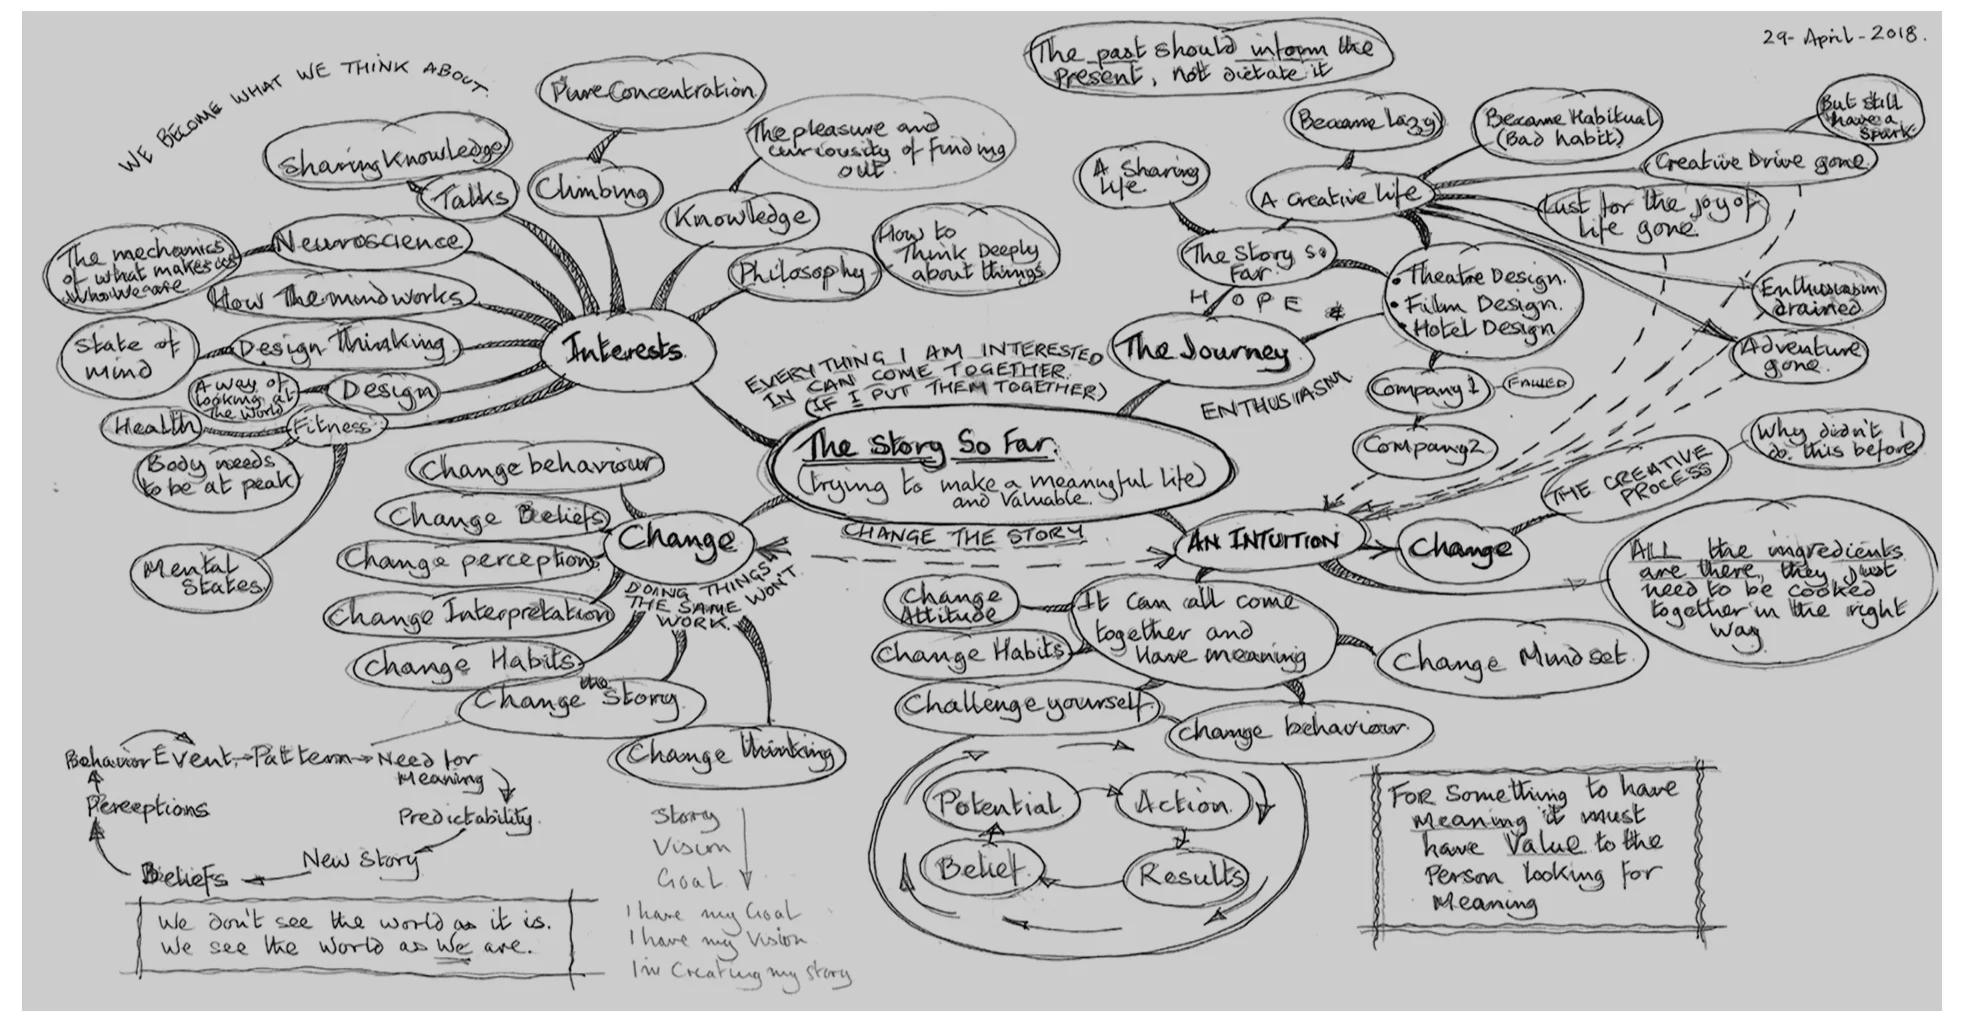 29-April-2018.
The past should inform the
present, not dictate it
WE BECOME WHAT WE THINK ABOUT.
Pure Concentration
Sharing Knowledge
The pleasure and
curiousity of finding
out.
Talks
Climbing
Knowledge
Neuroscience
The mechanics
of what makes us
who we are
How The mind works
Philosophy
How to
Think Deeply
about things
State of
mind
Design Thinking
Interests
A way of
looking at
the world
Design
Health
Fitness
Body needs
to be at peak
Mental
States
Became Lazy
Became Habitual
(Bad habit)
But still
have a
spark
Creative Drive gone
A Sharing
life
A Creative life
Lust for the joy of
life gone
The Story so
Far.
• Theatre Design.
• Film Design.
• Hotel Design
Enthusiasm
drained
HOPE
The Journey
Adventure
gone
ENTHUSIASM
Company 1
FAILED
Company 2
EVERYTHING I AM INTERESTED
IN CAN COME TOGETHER.
(IF I PUT THEM TOGETHER)
The Story So Far.
(trying to make a meaningful life)
and Valuable.
CHANGE THE STORY
Change
Change behaviour
Change Beliefs
Change perception
Change Interpretation
Change Habits
Change the Story
Change thinking
DOING THINGS
THE SAME WON'T
WORK.
AN INTUITION
Change
THE CREATIVE
PROCESS
Why didn't I
do this before
ALL the ingredients
are there, they just
need to be cooked
together in the right
way
It can all come
together and
Have meaning
Change
Attitude
Change Habits
Challenge yourself
Change Mindset.
Change behaviour
Behavior Event Pattern Need for
Meaning
Perceptions
Predictability
New Story
Beliefs
We don't see the world as it is.
We see the world as we are.
Story
Vision
Goal
I have my Goal
I have my Vision
I'm Creating my story
Potential
Action
Belief
Results
FOR Something to have
Meaning it must
have Value to the
Person looking for
Meaning